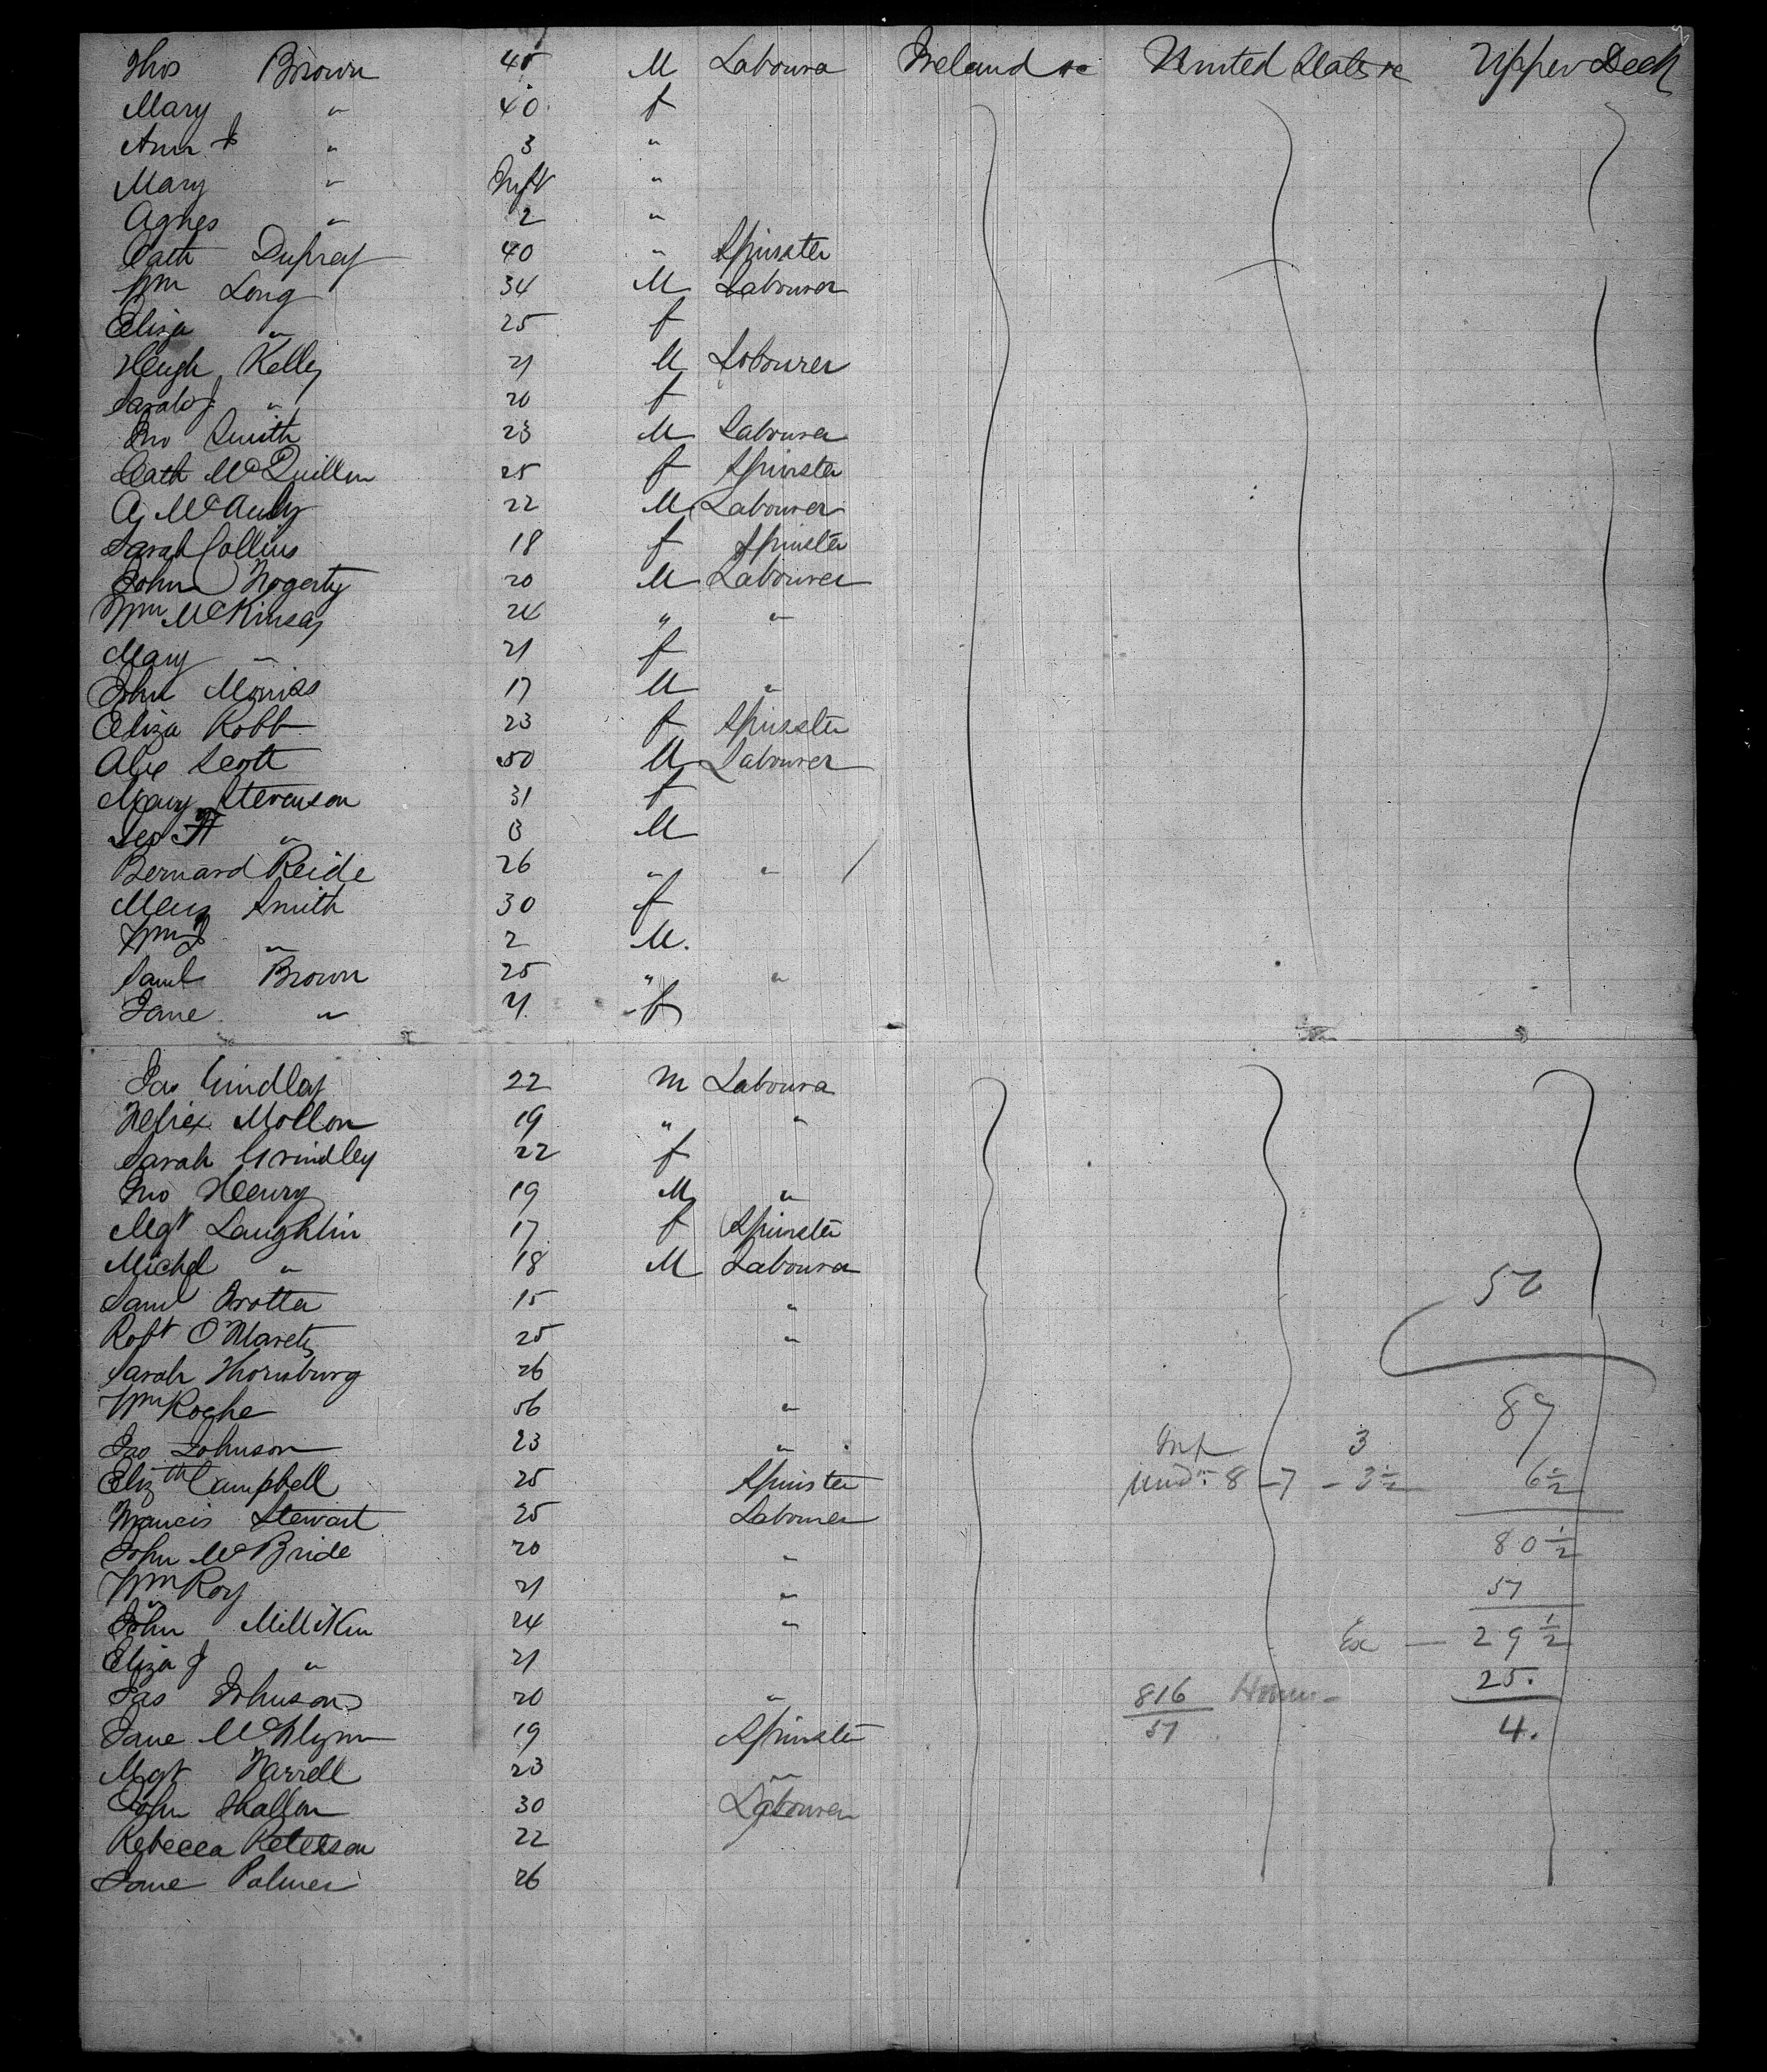 Thos Brown 45 M Laboura Ireland &c United States &c Upper Deck
Mary " 40 f
Ann J " 3 "
Mary " Inft "
Agnes " 2 "
Cath Duprey 40 " Spinster
Wm Long 34 M Labourer
Eliza " 25 f
Hugh Kelly 21 M Labourer
Sarah J " 20 f
Jno Smith 23 M Labourer
Cath McQuillan 25 f Spinster
A McAuly 22 M Labourer
Sarah Collins 18 f Spinster
John Fogerty 20 M Labourer
Wm McKinsay 24 " "
Mary " 21 f
John Morriss 17 M "
Eliza Robb 23 f Spinster
Alex Scott 50 M Labourer
Mary Stevenson 31 f
Geo " M
Bernard Reide 26 " "
Mary Smith 30 f
Wm J " 2 M.
Saml Brown 25 " "
Jane " 21 f
Jas Grindley 22 M Laboura
Felix Mollon 19 " "
Sarah Grindley 22 f
Jno Henry 19 M "
Mgt Laughlin 17 f Spinster
Michl " 18 M Laboura
Saml Trotter 15 "
Robt 25 "
Sarah Thornburg 26
Wm Roche 56 "
Jas Johnson 23 "
Elizth Campbell 25 Spinster
Francis Stewart 25 Labourer
John McBride 20 "
Wm Roy 21 "
John Milliken 24 "
Eliza J " 21
Jas Johnson 20 "
Jane McFlynn 19 Spinster
Mgt Farrell 23 "
John 30 Labourer
Rebecca Peterson 22
Jane Palmer 26
87
Inf 3
Undr 8 - 7 - 3½ 6½
80½
51
Ex - 29½
25.
4.
816
51